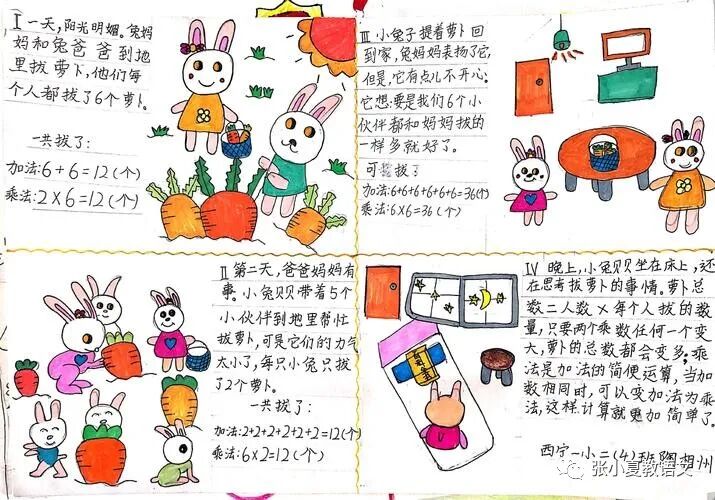 I 一天，阳光明媚。兔妈
妈和兔爸爸到地
里拔萝卜，他们每
个人都拔了6个萝卜。
一共拔了：
加法：6+6=12(个)
乘法：2×6=12(个)
II 第二天，爸爸妈妈有
事。小兔贝贝带着5个
小伙伴到地里帮忙
拔萝卜，可是它们的力气
太小了，每只小兔只拔
了2个萝卜。
一共拔了：
加法：2+2+2+2+2+2=12(个)
乘法：6×2=12(个)
III 小兔子提着萝卜回
到家，兔妈妈表扬了它，
但是，它有点儿不开心。
它想：要是我们6个小
伙伴都和妈妈拔的
一样多就好了。
可拔：
加法：6+6+6+6+6+6=36(个)
乘法：6×6=36(个)
IV 晚上，小兔贝贝坐在床上，还
在思考拔萝卜的事情。萝卜总
数=人数×每个人拔的数
量，只要两个乘数任何一个变
大，萝卜的总数都会变多。乘
法是加法的简便运算，当加
数相同时，可以变加法为乘
法，这样计算就更加简单了。
西宁一小二(4)班陶胡州
张小夏教语文